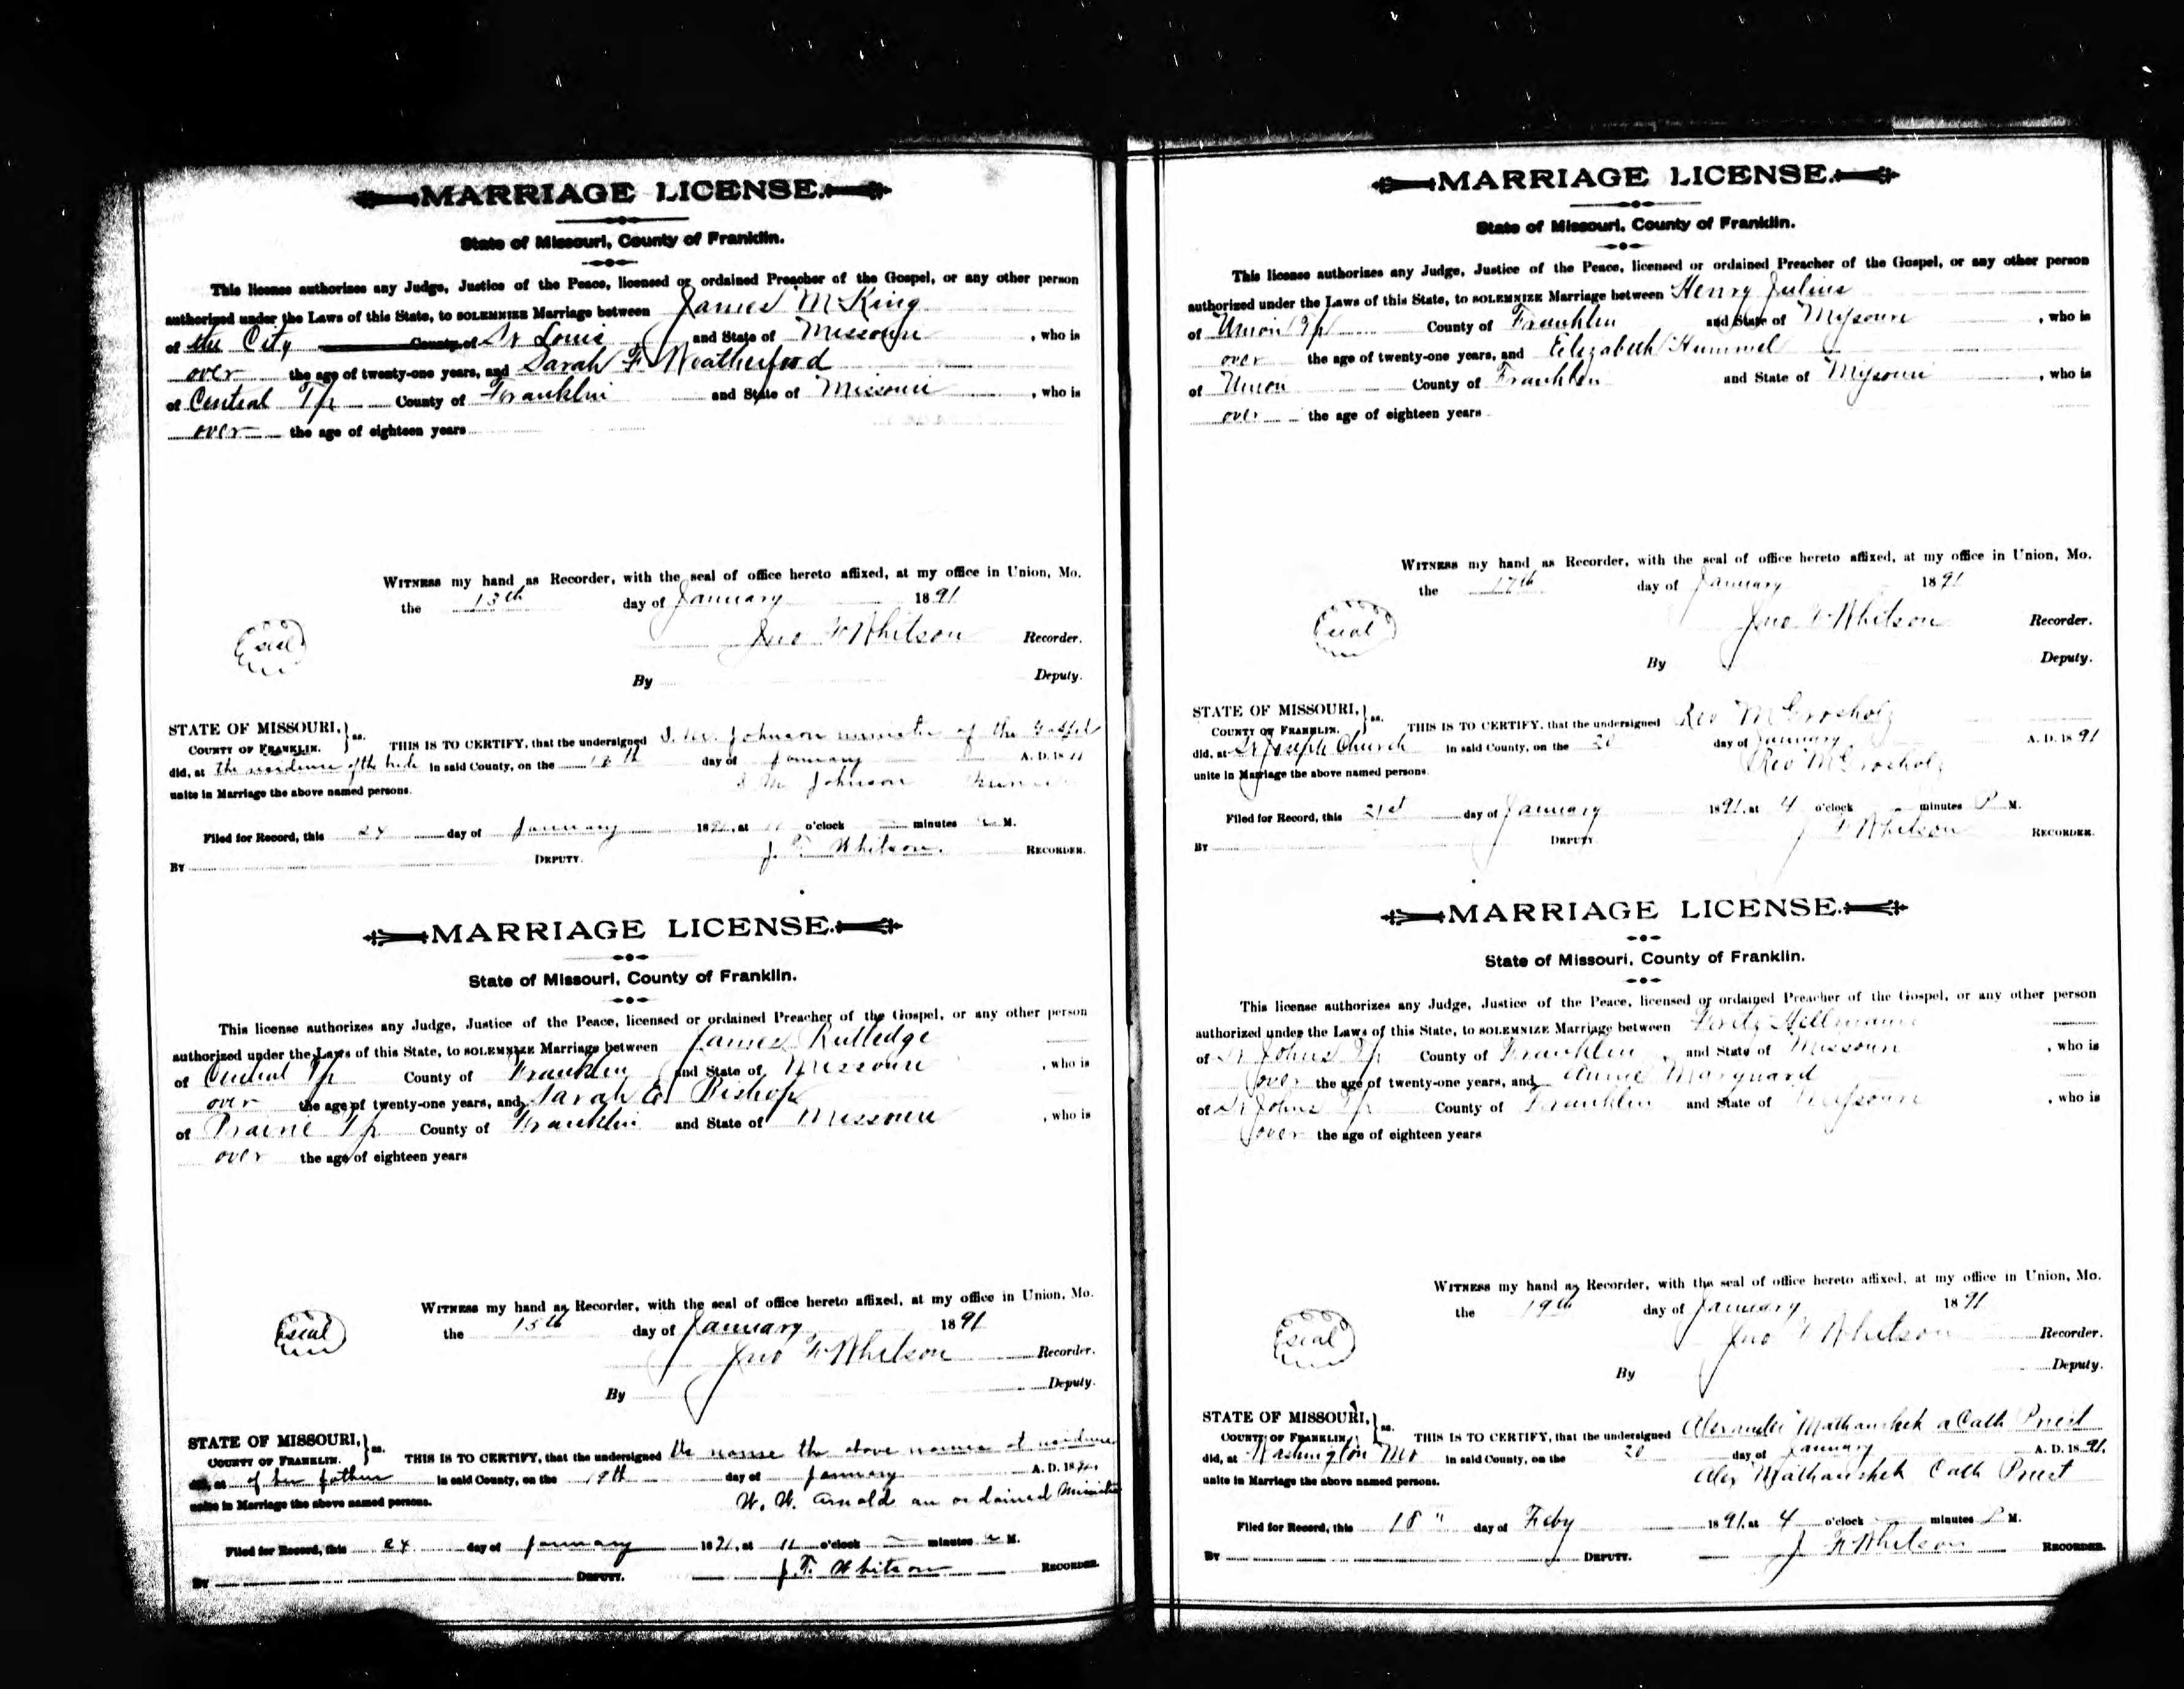 MARRIAGE LICENSE.
State of Missouri, County of Franklin.
This license authorizes any Judge, Justice of the Peace, licensed or ordained Preacher of the Gospel, or any other person
authorized under the Laws of this State, to SOLEMNIZE Marriage between James M King
of the City County of St Louis and State of Missouri, who is
over the age of twenty-one years, and Sarah F Weatherford
of Central Tp County of Franklin and State of Missouri, who is
over the age of eighteen years
WITNESS my hand as Recorder, with the seal of office hereto affixed, at my office in Union, Mo.
the 13th day of January 1891
seal
Jno F Whitson Recorder.
By Deputy.
STATE OF MISSOURI, COUNTY OF FRANKLIN. } ss. THIS IS TO CERTIFY, that the undersigned Johnson minister of the Gospel
did, at the residence of the bride in said County, on the day of January A. D. 18
unite in Marriage the above named persons. Johnson
Filed for Record, this 24 day of January 1891, at 11 o'clock — minutes M.
J. F. Whitson. RECORDER.
BY DEPUTY.
MARRIAGE LICENSE.
State of Missouri, County of Franklin.
This license authorizes any Judge, Justice of the Peace, licensed or ordained Preacher of the Gospel, or any other person
authorized under the Laws of this State, to SOLEMNIZE Marriage between James Rutledge
of Central Tp County of Franklin and State of Missouri, who is
over the age of twenty-one years, and Sarah E Bishop
of Prairie Tp County of Franklin and State of Missouri, who is
over the age of eighteen years
WITNESS my hand as Recorder, with the seal of office hereto affixed, at my office in Union, Mo.
the 15th day of January 1891
seal
Jno F Whitson Recorder.
By Deputy.
STATE OF MISSOURI, COUNTY OF FRANKLIN. } ss. THIS IS TO CERTIFY, that the undersigned the above at residence
did, at of her father in said County, on the 18th day of January A. D. 18
unite in Marriage the above named persons. W. W. Arnold an ordained Minister
Filed for Record, this 24 day of January 1891, at 11 o'clock — minutes a M.
J. F. Whitson RECORDER.
BY DEPUTY.
MARRIAGE LICENSE.
State of Missouri, County of Franklin.
This license authorizes any Judge, Justice of the Peace, licensed or ordained Preacher of the Gospel, or any other person
authorized under the Laws of this State, to SOLEMNIZE Marriage between Henry Julius
of Union Tp County of Franklin and State of Missouri, who is
over the age of twenty-one years, and Elizabeth Hummel
of Union County of Franklin and State of Missouri, who is
over the age of eighteen years
WITNESS my hand as Recorder, with the seal of office hereto affixed, at my office in Union, Mo.
the 17th day of January 1891
seal
Jno F Whitson Recorder.
By Deputy.
STATE OF MISSOURI, COUNTY OF FRANKLIN. } ss. THIS IS TO CERTIFY, that the undersigned Rev M Grosholz
did, at St Joseph Church in said County, on the 20 day of January A. D. 1891
unite in Marriage the above named persons. Rev M Grosholz
Filed for Record, this 21st day of January 1891, at 4 o'clock minutes P M.
J F Whitson RECORDER.
BY DEPUTY.
MARRIAGE LICENSE.
State of Missouri, County of Franklin.
This license authorizes any Judge, Justice of the Peace, licensed or ordained Preacher of the Gospel, or any other person
authorized under the Laws of this State, to SOLEMNIZE Marriage between Fritz Hillmann
of St Johns Tp County of Franklin and State of Missouri, who is
over the age of twenty-one years, and Annie Marquard
of St Johns Tp County of Franklin and State of Missouri, who is
over the age of eighteen years
WITNESS my hand as Recorder, with the seal of office hereto affixed, at my office in Union, Mo.
the 19th day of January 1891
seal
Jno F Whitson Recorder.
By Deputy.
STATE OF MISSOURI, COUNTY OF FRANKLIN, } ss. THIS IS TO CERTIFY, that the undersigned Alexander Mathauschek a Cath Priest
did, at Washington Mo in said County, on the 20 day of January A. D. 1891.
unite in Marriage the above named persons. Alex Mathauschek Cath Priest
Filed for Record, this 18" day of Feby 1891, at 4 o'clock minutes P M.
BY DEPUTY. J F Whitson RECORDER.